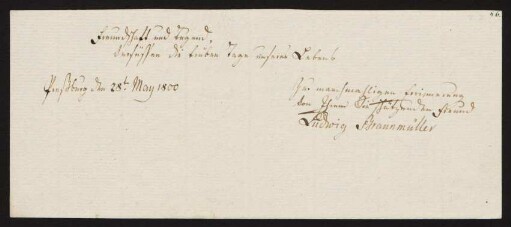 Freundschaft und Tugend,
Versüssen die trüben Tage unseres Lebens
Preßburg den 28t May 1800
Zur manchmahligen Erinnerung
von Ihrem Sie schätzenden Freund
Ludwig Braunmüller